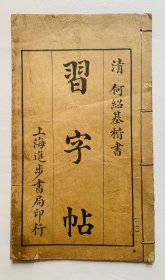 清 何紹基楷書
習字帖
上海進步書局印行